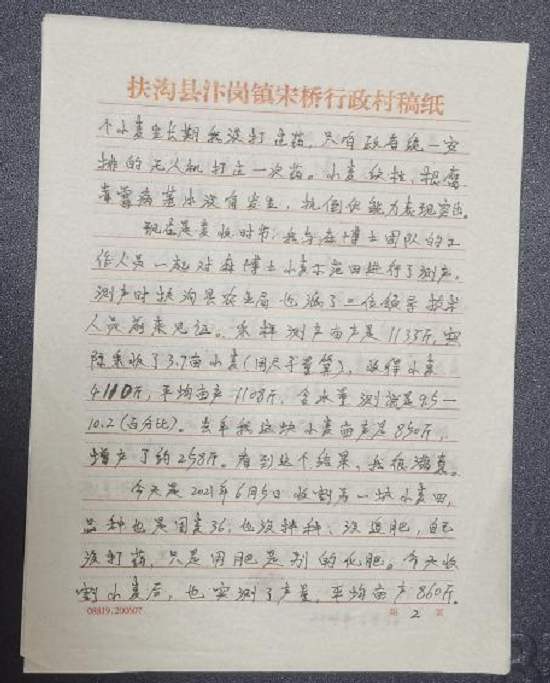 扶沟县汴岗镇宋桥行政村稿纸
个小麦生长期我没打过药，只有政府统一安
排的无人机打过一次药。小麦纹枯、根腐、
赤霉病基本没有发生，抗倒伏能力表现突出。
现在是麦收时节，我与麻博士团队的工
作人员一起对麻博士小麦示范田进行了测产，
测产时扶沟县农业局也派了二位领导技术
人员前来见证。采样测产亩产是1133斤，实
际采收了3.7亩小麦（用尺子量算），收得小麦
4110斤，平均亩产1108斤，含水量测试是9.5—
10.2（百分比）。去年我这块小麦亩产是850斤，
增产了约258斤。看到这个结果，我很满意。
今天是2021年6月5日收割另一块小麦田，
品种也是周麦36，也没拌种、没追肥，自己
没打药，只是用肥是别的化肥。今天收
割小麦后，也实测了产量，平均亩产860斤。
08819.200507
第 2 页